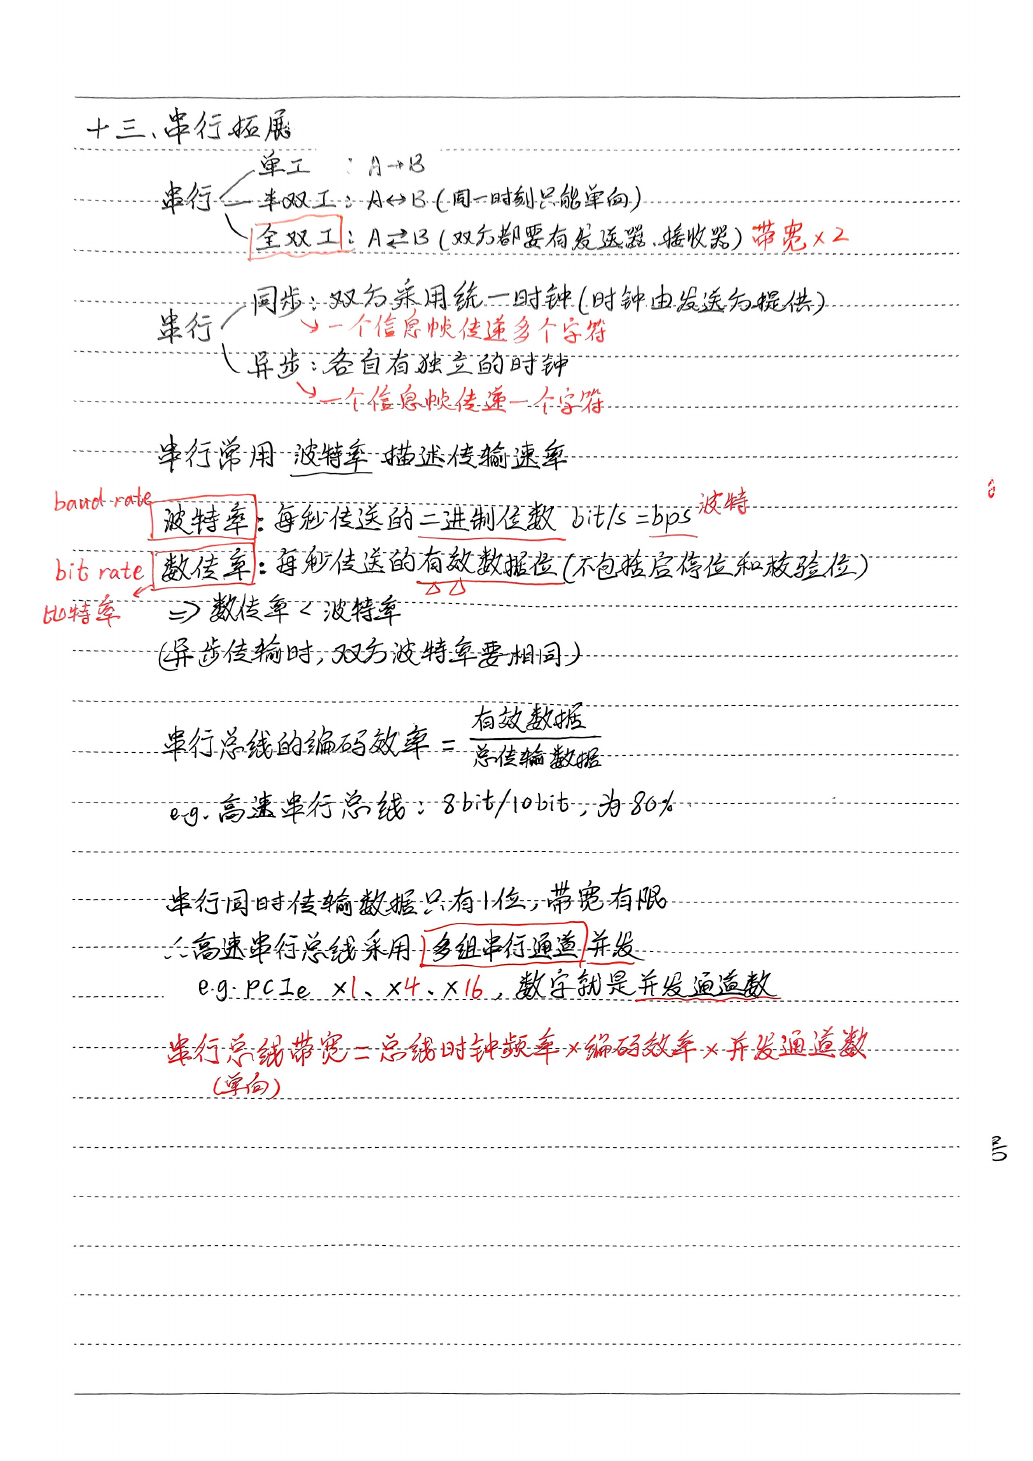 十三、串行拓展
单工 : A→B
串行 半双工: A↔B (同一时刻只能单向)
全双工: A⇄B (双方都要有发送器、接收器) 带宽×2
同步: 双方采用统一时钟(时钟由发送方提供)
串行 ↘一个信息帧传递多个字符
异步: 各自有独立的时钟
↘一个信息帧传递一个字符
串行常用 波特率 描述传输速率
baud rate 波特率: 每秒传送的二进制位数 bit/s = bps 波特
bit rate 数传率: 每秒传送的有效数据位(不包括启停位和校验位)
比特率 ⇒ 数传率 < 波特率
(异步传输时, 双方波特率要相同)
串行总线的编码效率 = 有效数据 / 总传输数据
e.g. 高速串行总线: 8bit/10bit, 为80%.
串行同时传输数据只有1位, 带宽有限
∴高速串行总线采用 多组串行通道 并发
e.g. PCIe ×1、×4、×16, 数字就是并发通道数
串行总线带宽 = 总线时钟频率 × 编码效率 × 并发通道数
(单向)